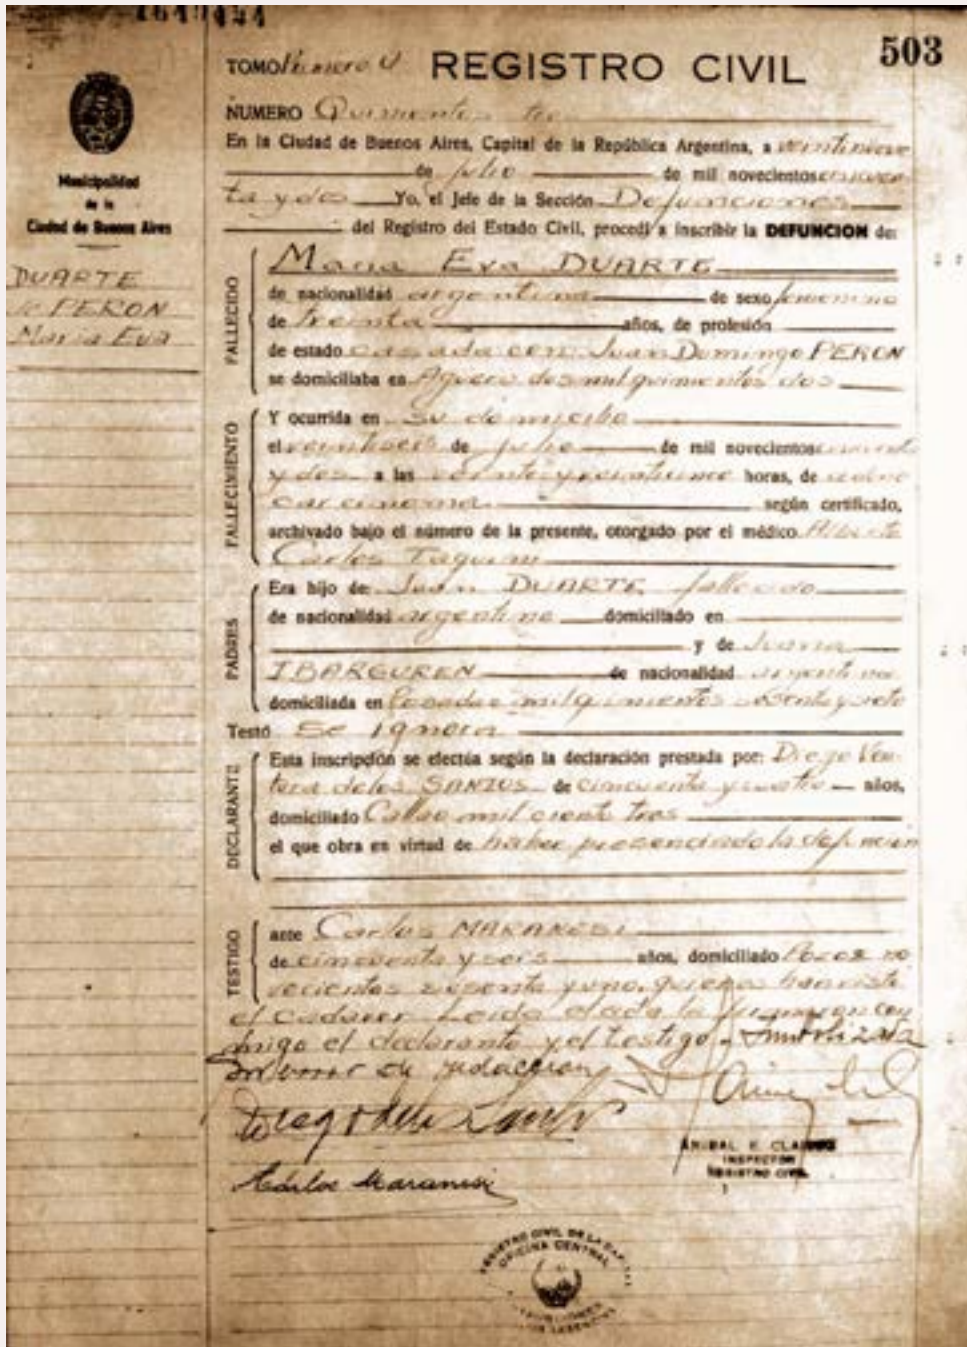 503
TOMO Numero REGISTRO CIVIL
NUMERO Quinientos tres
En la Ciudad de Buenos Aires, Capital de la República Argentina, a veintinueve
de julio de mil novecientos cincuen
ta y dos Yo, el Jefe de la Sección Defunciones
del Registro del Estado Civil, procedí a inscribir la DEFUNCION de:
Municipalidad
de la
Ciudad de Buenos Aires
DUARTE
de PERON
Maria Eva
FALLECIDO
Maria Eva DUARTE
de nacionalidad argentina de sexo femenino
de treinta años, de profesión
de estado casada con Juan Domingo PERON
se domiciliaba en Aguero dos mil quinientos dos
FALLECIMIENTO
Y ocurrida en su domicilio
el veintiseis de julio de mil novecientos cincuenta
y dos a las veinte y horas, de
carcinoma según certificado,
archivado bajo el número de la presente, otorgado por el médico Alberto
Carlos Taquini
PADRES
Era hijo de Juan DUARTE fallecido
de nacionalidad argentina domiciliado en
y de Juana
IBARGUREN de nacionalidad argentina
domiciliada en Posadas mil quinientos sesenta y siete
Testó Se ignora
DECLARANTE
Esta inscripción se efectúa según la declaración prestada por: Diego Ven
tura de los SANTOS de cincuenta y cuatro años,
domiciliado Callao mil ciento tres
el que obra en virtud de haber presenciado la defunción
TESTIGO
ante Carlos MARANESI
de cincuenta y seis años, domiciliado Pozos no
vecientos sesenta y uno, quienes han visto
el cadaver Leida el acta la firmaron con
migo el declarante y el testigo.
error de redaccion
ANIBAL
INSPECTOR
REGISTRO CIVIL
REGISTRO CIVIL DE LA CAPITAL
OFICINA CENTRAL